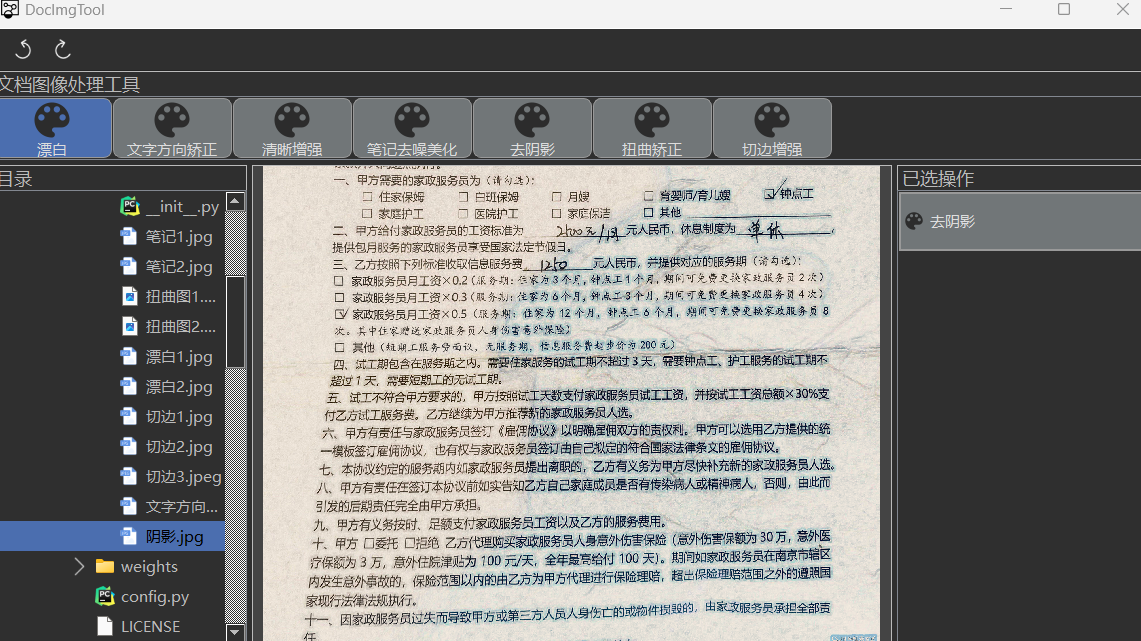 DocImgTool
文档图像处理工具
漂白
文字方向矫正
清晰增强
笔记去噪美化
去阴影
扭曲矫正
切边增强
目录
__init__.py
笔记1.jpg
笔记2.jpg
扭曲图1....
扭曲图2....
漂白1.jpg
漂白2.jpg
切边1.jpg
切边2.jpg
切边3.jpeg
文字方向...
阴影.jpg
weights
config.py
LICENSE
一、甲方需要的家政服务员为（请勾选）：
□ 住家保姆 □ 白班保姆 □ 月嫂 □ 育婴师/育儿嫂 ☑ 钟点工
□ 家庭护工 □ 医院护工 □ 家庭保洁 □ 其他
二、甲方给付家政服务员的工资标准为 2400元/月 元人民币，休息制度为 单休，
提供包月服务的家政服务员享受国家法定节假日。
三、乙方按照下列标准收取信息服务费 1250 元人民币，并提供对应的服务期（请勾选）：
□ 家政服务员月工资×0.2（服务期：住家为3个月，钟点工1个月，期间可免费更换家政服务员2次）
□ 家政服务员月工资×0.3（服务期：住家为6个月，钟点工3个月，期间可免费更换家政服务员4次）
☑ 家政服务员月工资×0.5（服务期：住家为12个月，钟点工6个月，期间可免费更换家政服务员8
次。其中住家赠送家政服务员人身伤害意外保险）
□ 其他（短期工服务势面议，无服务期，信息服务费起步价为200元）
四、试工期包含在服务期之内。需要住家服务的试工期不超过3天，需要钟点工、护工服务的试工期不
超过1天，需要短期工的无试工期。
五、试工不符合甲方要求的，甲方按照试工天数支付家政服务员试工工资，并按试工工资总额×30%支
付乙方试工服务费。乙方继续为甲方推荐新的家政服务员人选。
六、甲方有责任与家政服务员签订《雇佣协议》以明确雇佣双方的责权利。甲方可以选用乙方提供的统
一模板签订雇佣协议，也有权与家政服务员签订由自己拟定的符合国家法律条文的雇佣协议。
七、本协议约定的服务期内如家政服务员提出离职的，乙方有义务为甲方尽快补充新的家政服务人选。
八、甲方有责任在签订本协议前如实告知乙方自己家庭成员是否有传染病人或精神病人，否则，由此而
引发的后期责任完全由甲方承担。
九、甲方有义务按时、足额支付家政服务员工资以及乙方的服务费用。
十、甲方 □委托 □拒绝 乙方代理购买家政服务员人身意外伤害保险（意外伤害保额为30万，意外医
疗保额为3万，意外住院津贴为100元/天，全年最高给付100天）。期间如家政服务员在南京市辖区
内发生意外事故的，保险范围以内的由乙方为甲方代理进行保险理赔，超出保险理赔范围之外的遵照国
家现行法律法规执行。
十一、因家政服务员过失而导致甲方或第三方人员人身伤亡的或物件损毁的，由家政服务员承担全部责
任
已选操作
去阴影